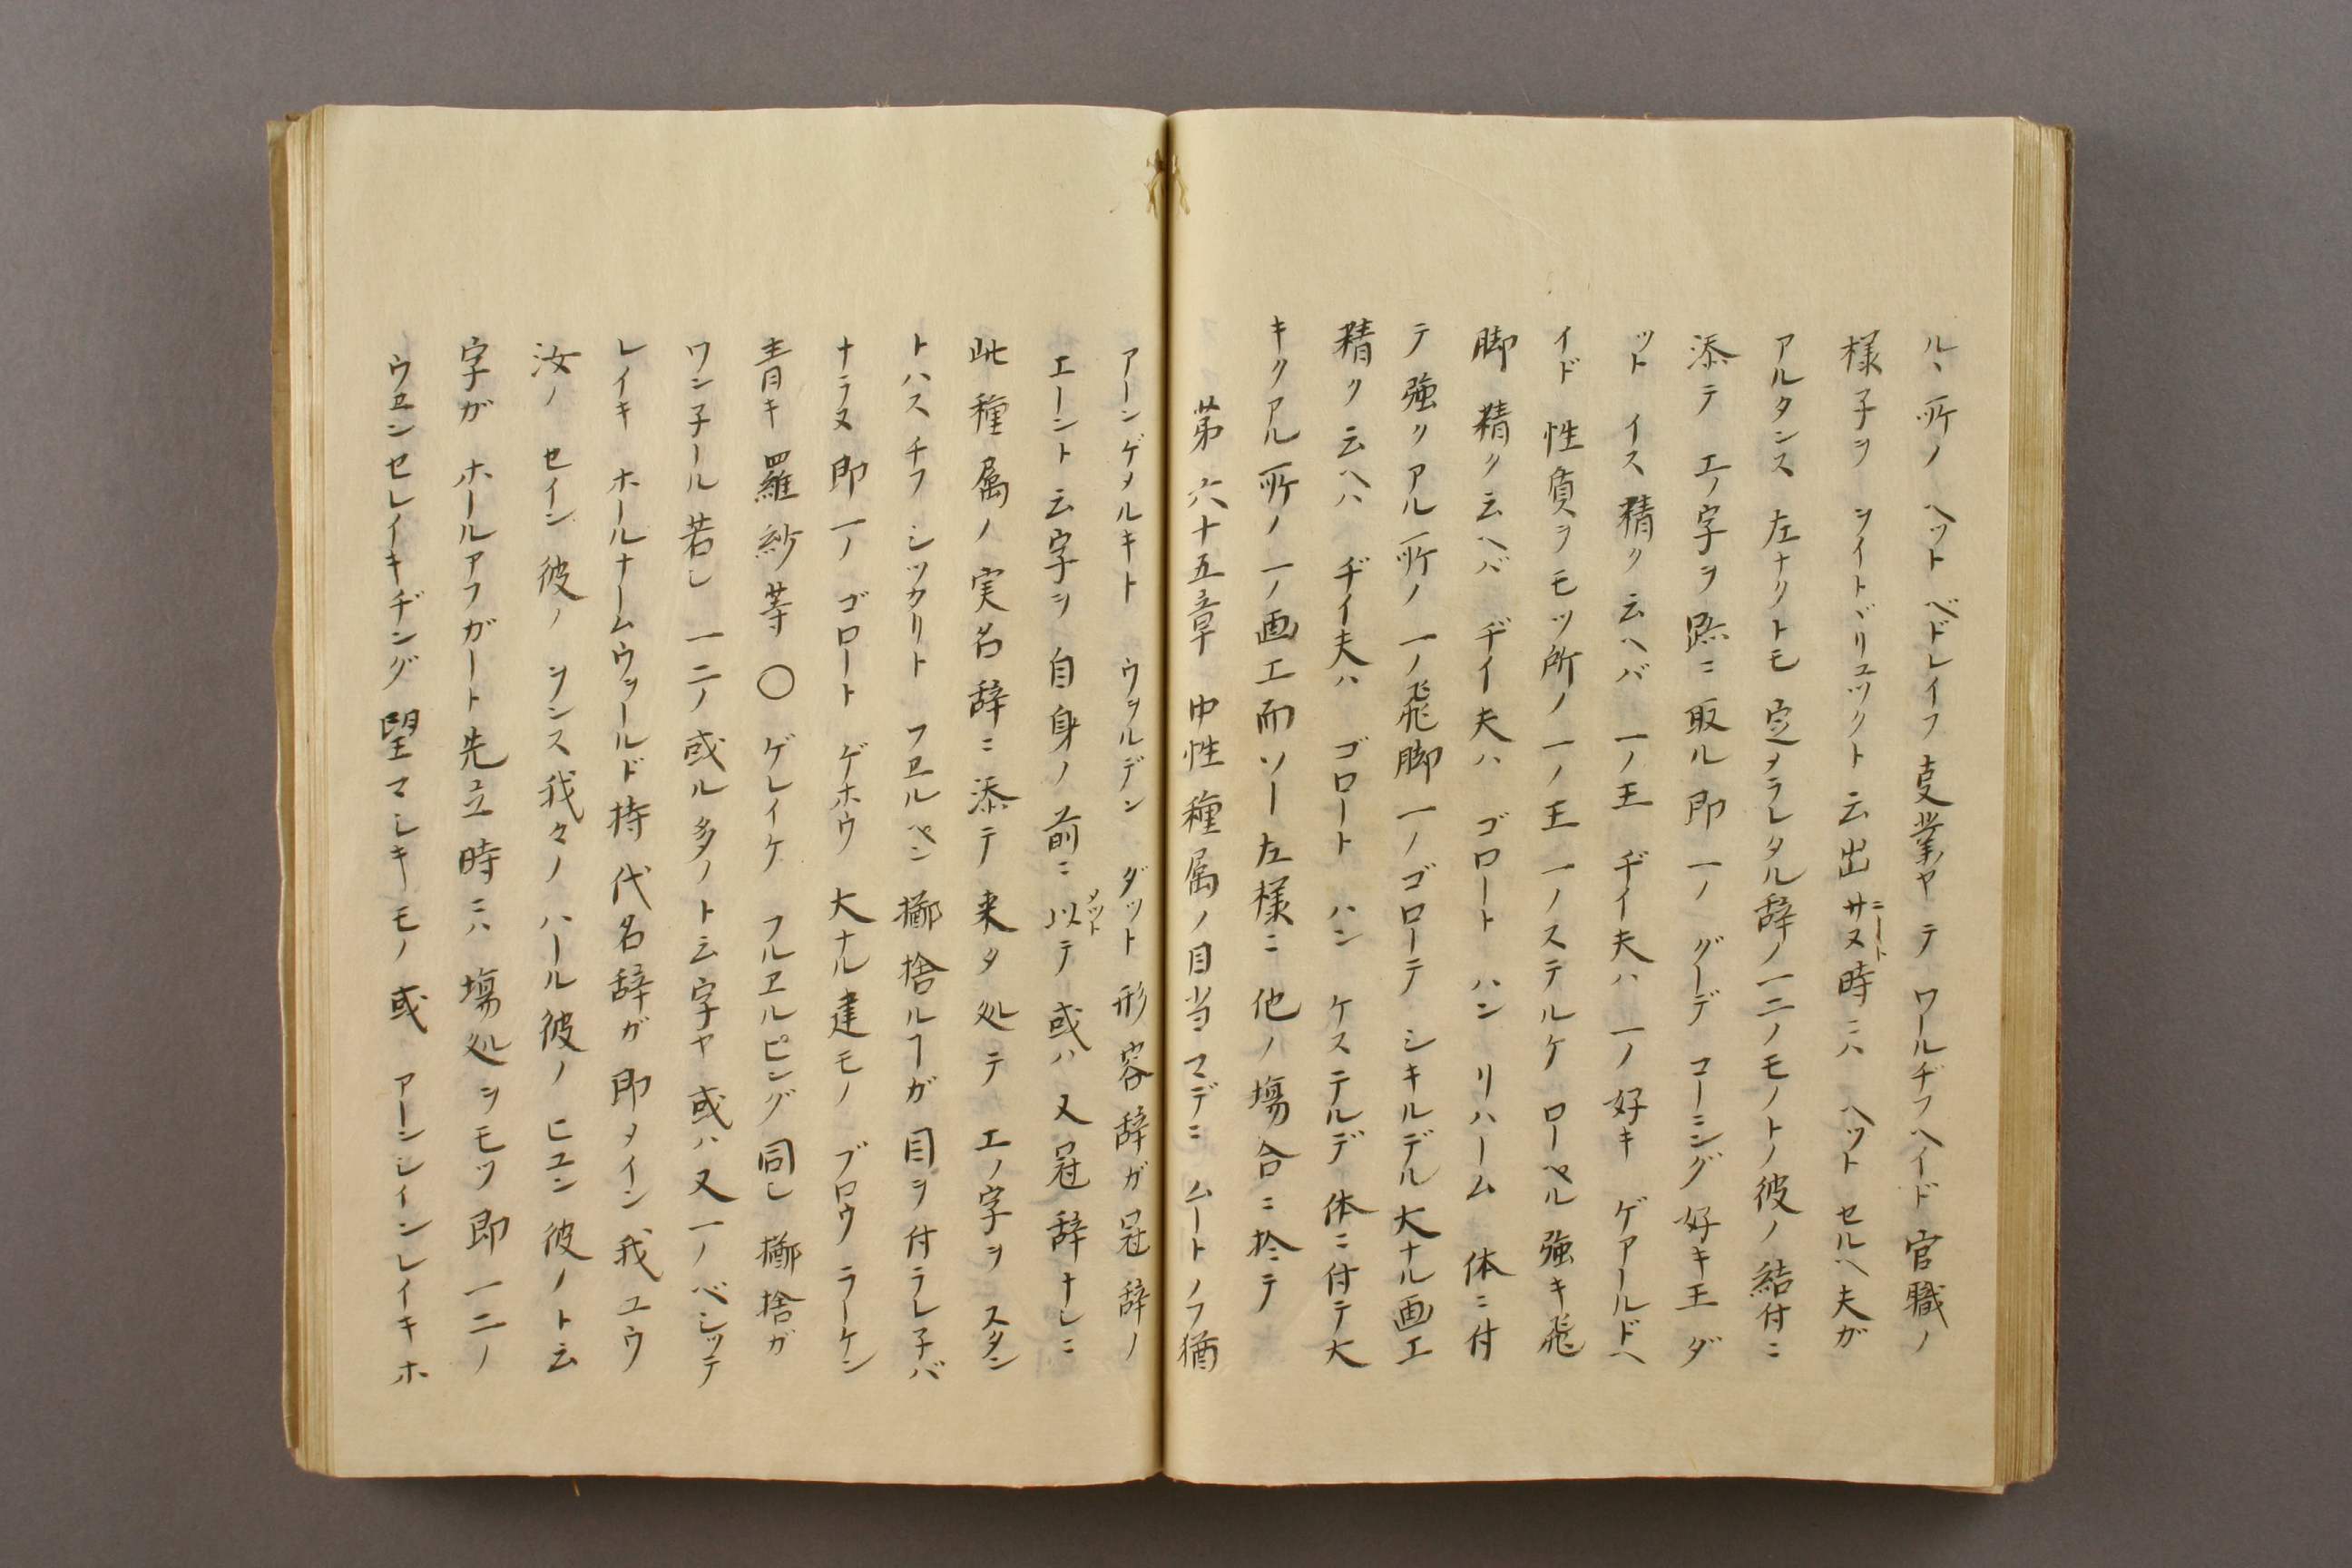 ルヽ所ノ ヘット ベドレイフ 支業ヤ テ ワールヂフヘイド 官職ノ
様子ヲ ヲイトヾリユックト 云出サヌ時ニハ ヘット セルヘ夫ガ
ニート
アルタンス 左ナクトモ 定メラレタル辞ノ一二ノモノトノ彼ノ結付ニ
添テ エノ字ヲ 跡ニ取ル即 一ノ グーデ コーニング 好キ王 ダ
ット イス 精ク云ヘバ 一ノ王 ヂイ夫ハ 一ノ好キ ゲアールドヘ
イド 性質ヲモツ所ノ 一ノ王 一ノステルケ ローペル 強キ飛
脚 精ク云ヘバ ヂイ夫ハ ゴロート ハン リハーム 体ニ付
テ 強クアル所ノ 一ノ飛脚 一ノゴローテ シキルデル 大ナル画工
精ク云ヘハ ヂイ夫ハ ゴロート ハン ケステルデ 体ニ付テ大
キクアル所ノ 一ノ画工而ソー左様ニ 他ノ場合ニ於テ
第六十五章 中性種属ノ目当マデニ ムートノフ猶
アーンゲメルキト ウヲルデン ダット 形容辞ガ冠辞ノ
エーント云字ヲ 自身ノ前ニ以テ或ハ又冠辞ナしニ
メット
此種属ノ実名辞ニ添テ来タ処テ エノ字ヲ スタン
トハス チフ シツカリト フヱルペン 擲捨ルヿガ 目ヲ付ラレ子バ
ナラヌ 即一ノ ゴロート ゲホウ 大ナル建モノ ブロウ ラーケン
青キ羅紗等 〇 ゲレイケ フルヱルピング 同し擲捨ガ
ワン子ール若し 一二ノ或ル多ノト云字ヤ或ハ又一ノ ベシッテ
レイキ ホールナームウヲールド 持代名辞ガ即メイン我ユウ
汝ノ セイン 彼ノ ヲンス 我々ノ ハール彼ノ ヒユン 彼ノト云
字ガ ホールアフガート 先立時ニハ 場処ヲモツ即一二ノ
ウヱンセレイキヂング 望マしキモノ或 アーンしインレイキホ